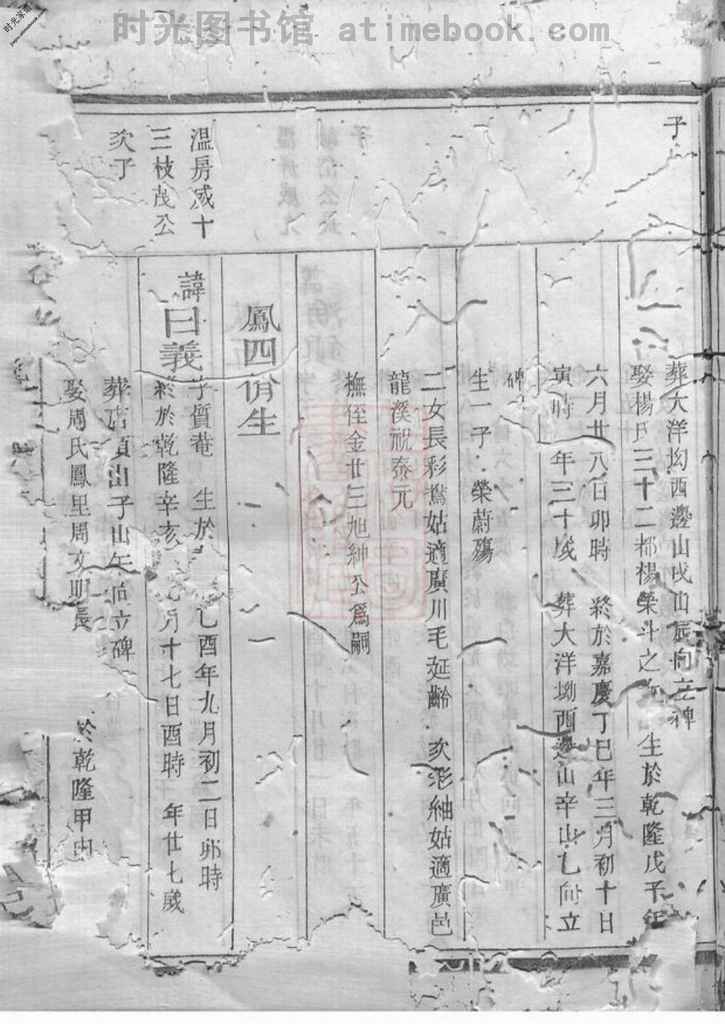 时光图书馆 atimebook.com
子
葬大洋坳西邊山戌山辰向立碑
娶楊氏三十二都楊榮斗之 生於乾隆戊子年
六月廿八日卯時 終於嘉慶丁巳年三月初十日
寅時 年三十歲 葬大洋坳西邊山辛山乙向立
碑
生一子 榮蔚殤
二女長彩鸞姑適廣川毛延齡 次彩紬姑適廣邑
龍溪祝泰元
撫侄金廿三旭紳公爲嗣
鳳四佾生
溫房咸十
三枝茂公
次子
諱曰義
字質菴 生於 乙酉年九月初二日卯時
終於乾隆辛亥 月十七日酉時 年廿七歲
葬店 出子山午向立碑
娶周氏鳳里周文明長 於乾隆甲申